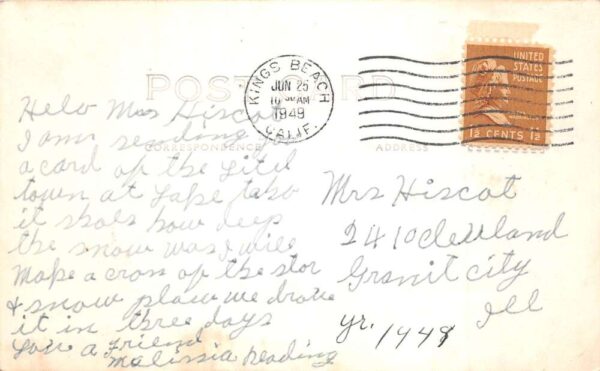 POST CARD
CORRESPONDENCE
ADDRESS
KINGS BEACH
JUN 25
10 AM
1949
CALIF.
UNITED
STATES
POSTAGE
1½ CENTS 1½
Helo Mrs Hiscot
I am sending
a card of the Litel
town at Lake taho
it shols how deep
the snow was I will
Make a cross of the stor
& snow plaw we drove
it in three days
Love a friend
Malissia Reading
Mrs Hiscot
2410 Clevland
Granit City
Ill
yr. 1948